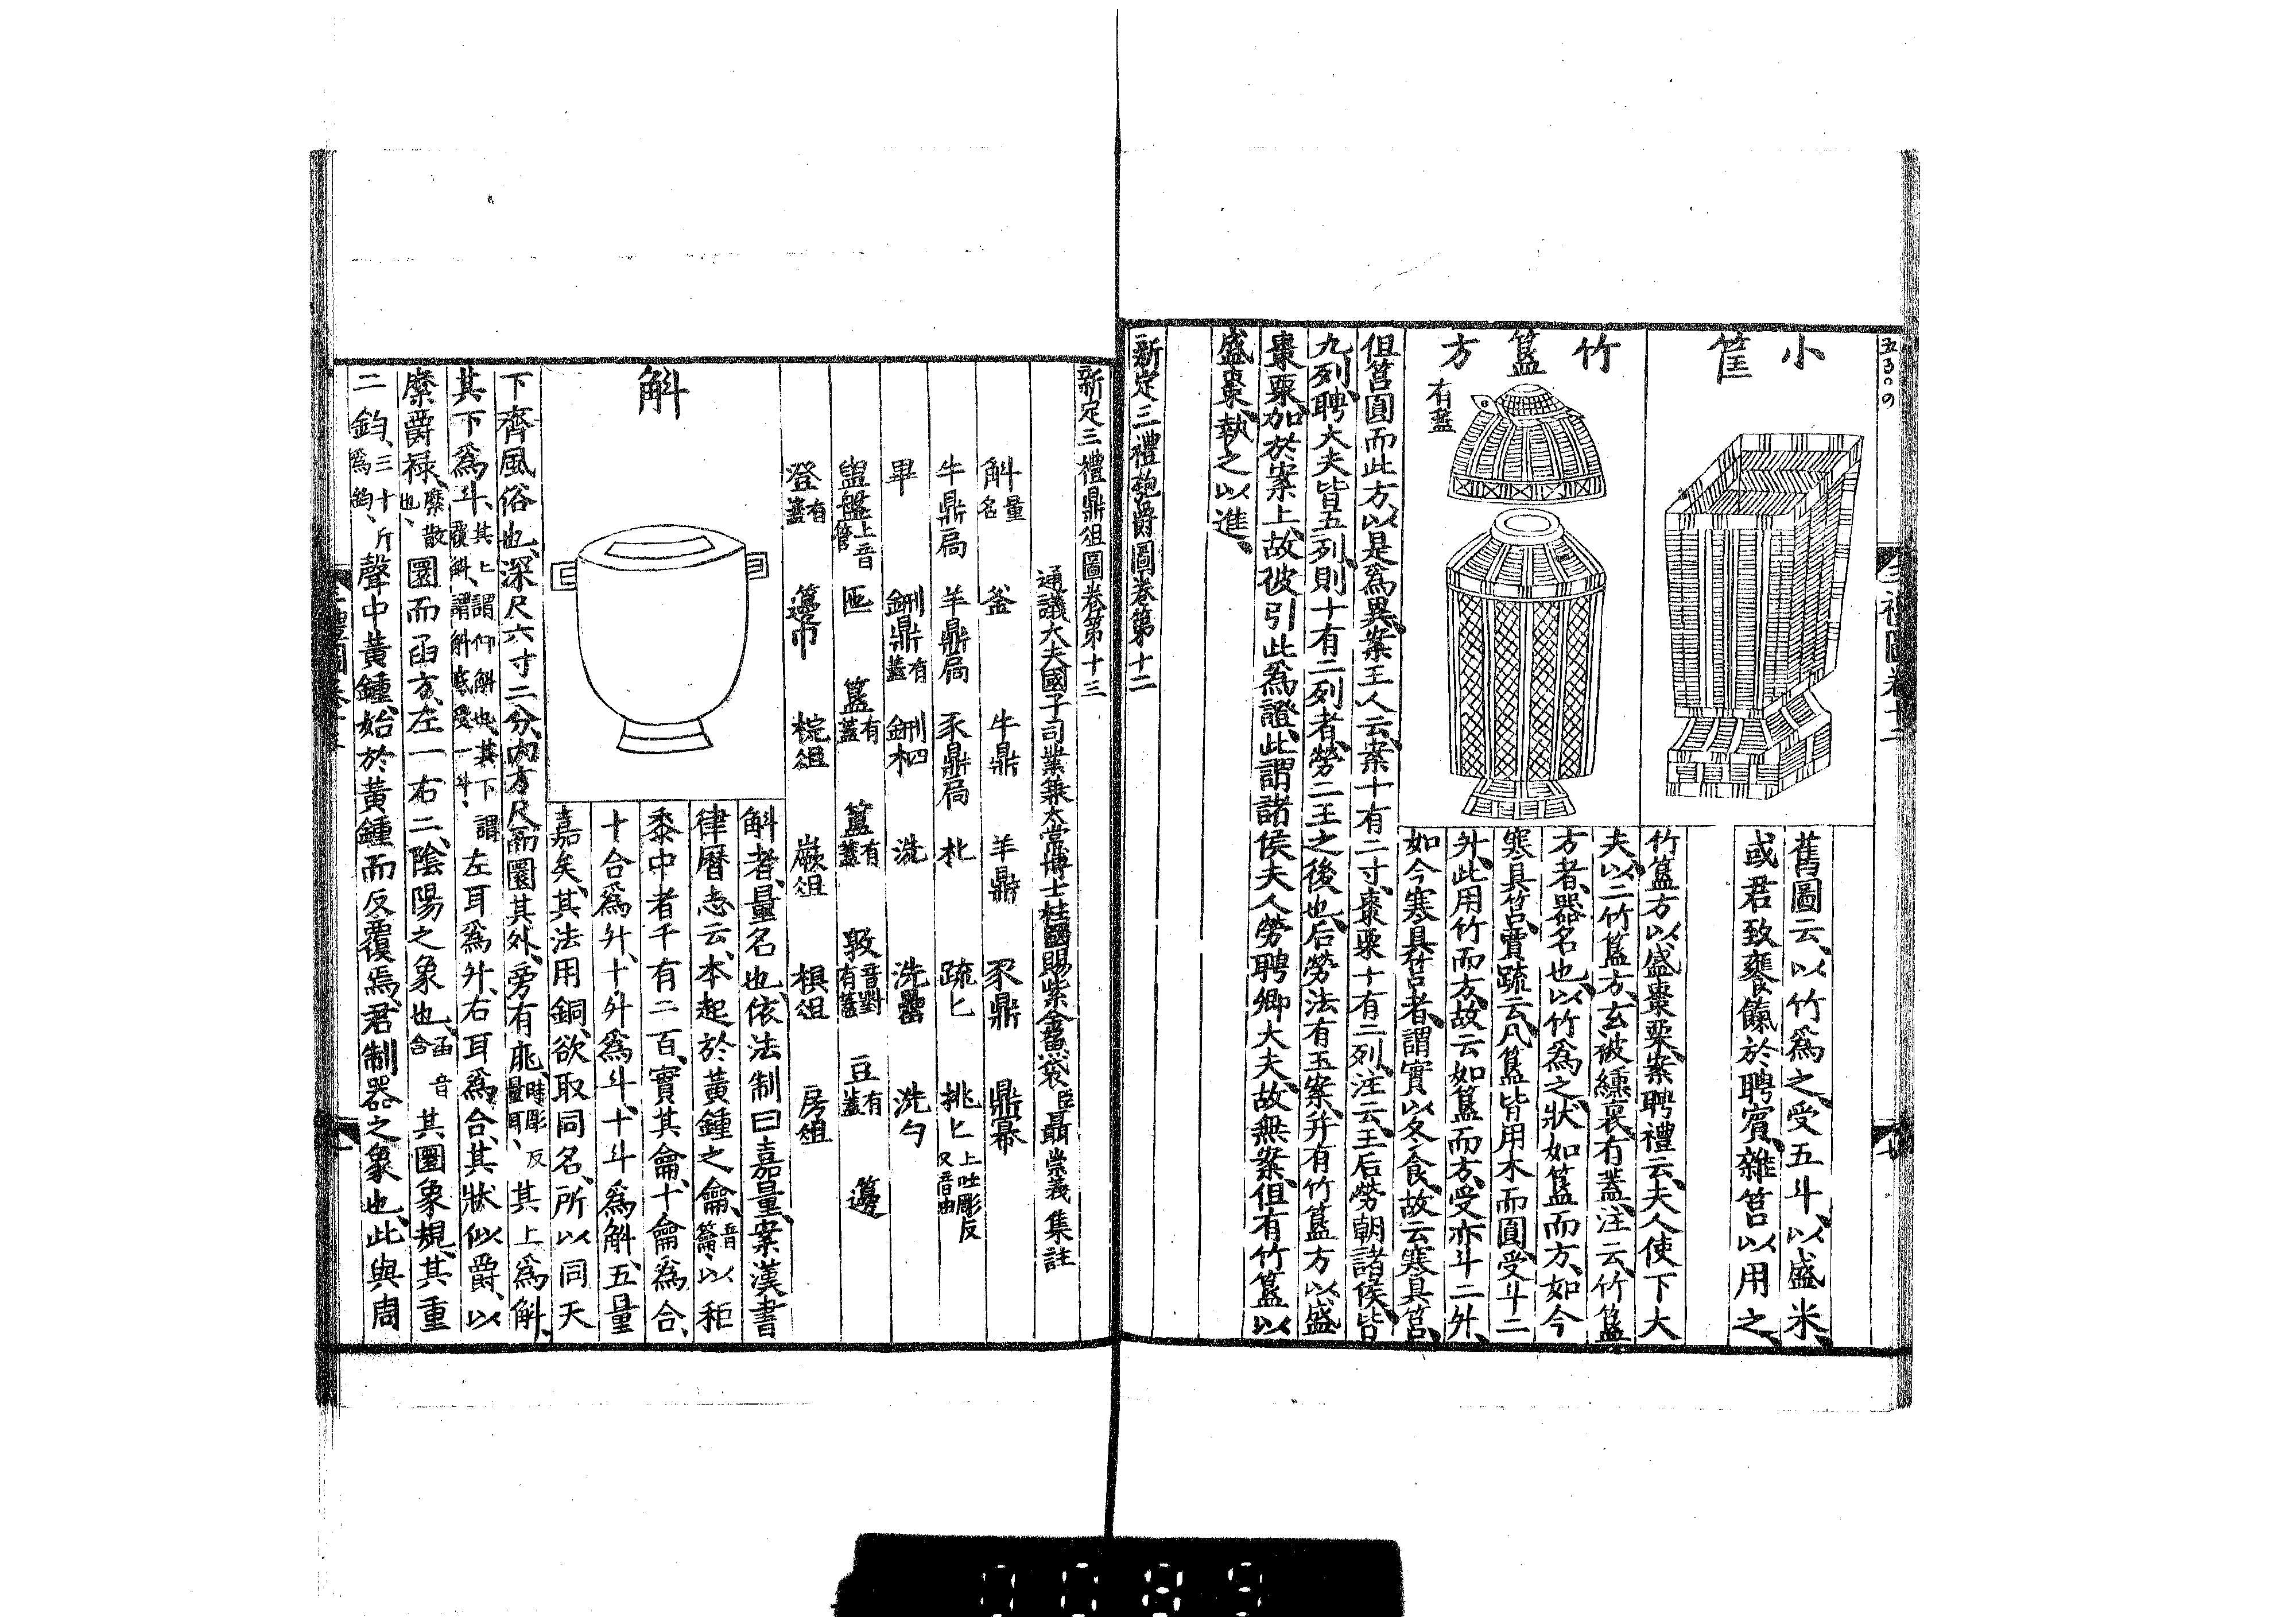 小筐
舊圖云、以竹爲之、受五斗、以盛米、
或君致饔餼於聘賓、雜筥以用之、
竹簋方
有蓋
竹簋方以盛棗栗、案聘禮云、夫人使下大
夫、以二竹簋方、玄被纁裏、有蓋、注云、竹簋
方者、器名也、以竹爲之、狀如簋而方、如今
寒具筥、賈疏云、凡簋皆用木而圓、受斗二
升、此用竹而方、故云如簋而方、受亦斗二升、
如今寒具筥者、謂實以冬食、故云寒具筥、
但筥圓而此方、以是爲異、案玉人云、案十有二寸、棗栗十有二列、注云、王后勞朝諸侯、皆
九列、聘大夫皆五列、則十有二列者、勞二王之後也、后勞法有玉案、并有竹簋方以盛
棗栗、加於案上、故彼引此爲證、此謂諸侯夫人勞聘卿大夫、故無案、但有竹簋以
盛棗、執之以進、
新定三禮匏爵圖卷第十二
新定三禮鼎俎圖卷第十三
通議大夫國子司業兼太常博士柱國賜紫金魚袋臣聶崇義集註
斛量名 釜 牛鼎 羊鼎 豕鼎 鼎冪
牛鼎扃 羊鼎扃 豕鼎扃 朼 疏匕 挑匕上吐彫反又音由
畢 鉶鼎有蓋 鉶柶 洗 洗罍 洗勺
盥盤上音管 匜 簋有蓋 簠有蓋 敦音對有蓋 豆有蓋 籩
登有蓋 籩巾 梡俎 嶡俎 椇俎 房俎
斛
斛者、量名也、依法制曰嘉量、案漢書
律曆志云、本起於黃鍾之龠、音籥、以秬
黍中者千有二百、實其龠、十龠爲合、
十合爲升、十升爲斗、十斗爲斛、五量
嘉矣、其法用銅、欲取同名、所以同天
下齊風俗也、深尺六寸二分、內方尺而圜其外、旁有庣、時彫反量耳、其上爲斛、
其下爲斗、其上謂仰斛也、其下謂覆斛、謂斛底受一斗、左耳爲升、右耳爲合、其狀似爵、以
縻爵祿、縻散也、圜而函方、左一右二、陰陽之象也、函音含其圜象規、其重
二鈞、三十斤爲鈞、聲中黃鍾、始於黃鍾而反覆焉、君制器之象也、此與周